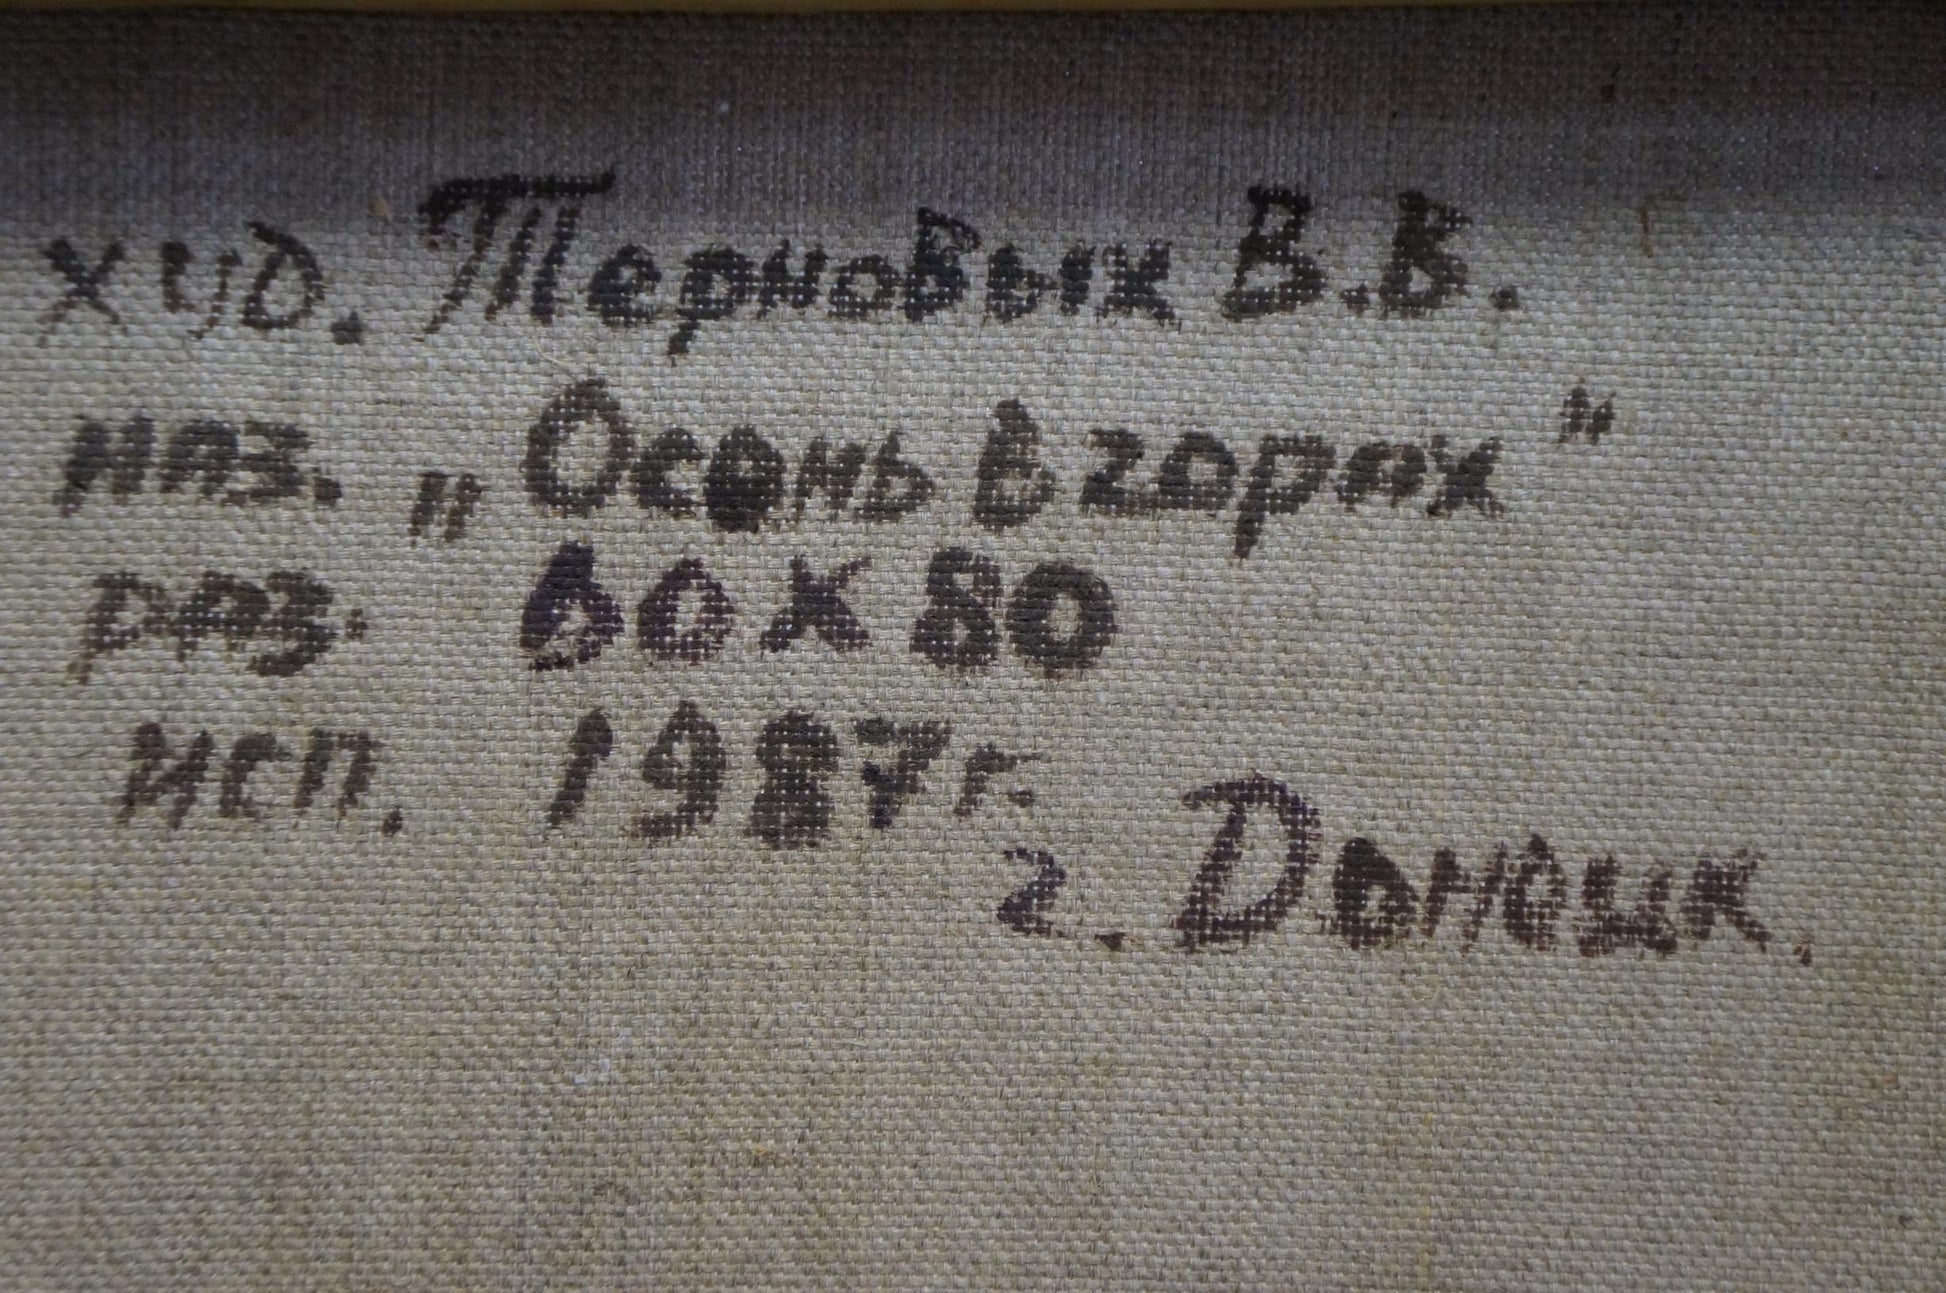 худ. Терновых В.В.
наз. „Осень в горах"
раз. 60х80
исп. 1987 г.
г. Донецк.